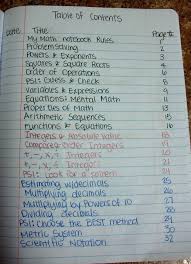 Table of Contents
Date Title Page #
My Math notebook Rules 1
Problem Solving 2
Powers & Exponents 3
Squares & Square Roots 4
Order of Operations 6
PSI: Guess & Check 8
Variables & Expressions 9
Equations: Mental Math 11
Properties of Math 13
Arithmetic Sequences 15
Functions & Equations 16
Integers & Absolute Value 18
Compare & Order Integers 19
Integers 20
Integers 21
PSI: Look for a pattern 24
Estimating w/decimals 25
Multiplying decimals 26
Multiplying by Powers of 10 27
Dividing decimals 28
PSI: Choose the BEST method 29
Metric System 30
Scientific Notation 32